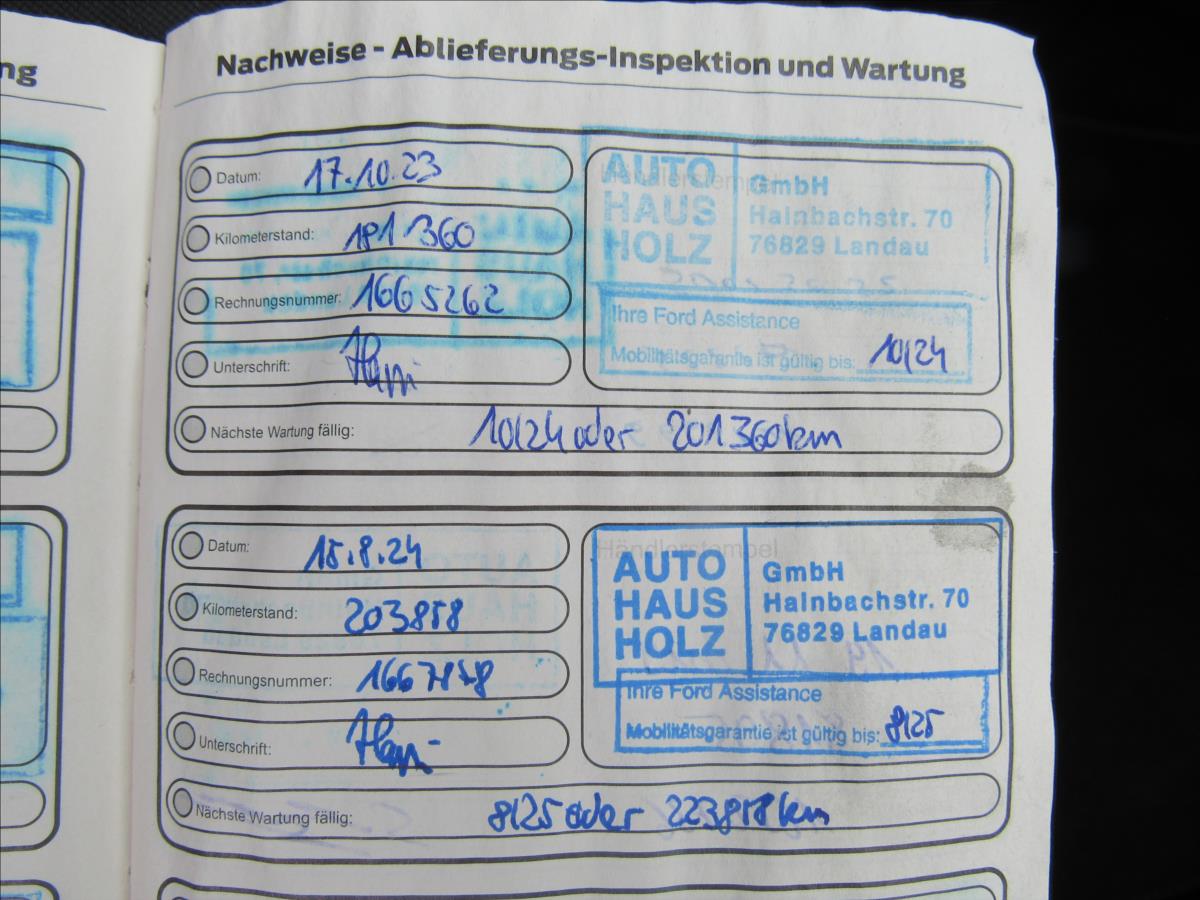 ng
Nachweise - Ablieferungs-Inspektion und Wartung
Datum: 17.10.23
Kilometerstand: 181360
Rechnungsnummer: 1665262
Unterschrift:
Nächste Wartung fällig: 10/24 oder 201360km
Händlerstempel
AUTO
HAUS
HOLZ
GmbH
Hainbachstr. 70
76829 Landau
Ihre Ford Assistance
Mobilitätsgarantie ist gültig bis: 10/24
Datum: 15.8.24
Kilometerstand: 203858
Rechnungsnummer:
Unterschrift:
Nächste Wartung fällig: 8/25 oder 223858km
Händlerstempel
AUTO
HAUS
HOLZ
GmbH
Hainbachstr. 70
76829 Landau
Ihre Ford Assistance
Mobilitätsgarantie ist gültig bis: 8/25